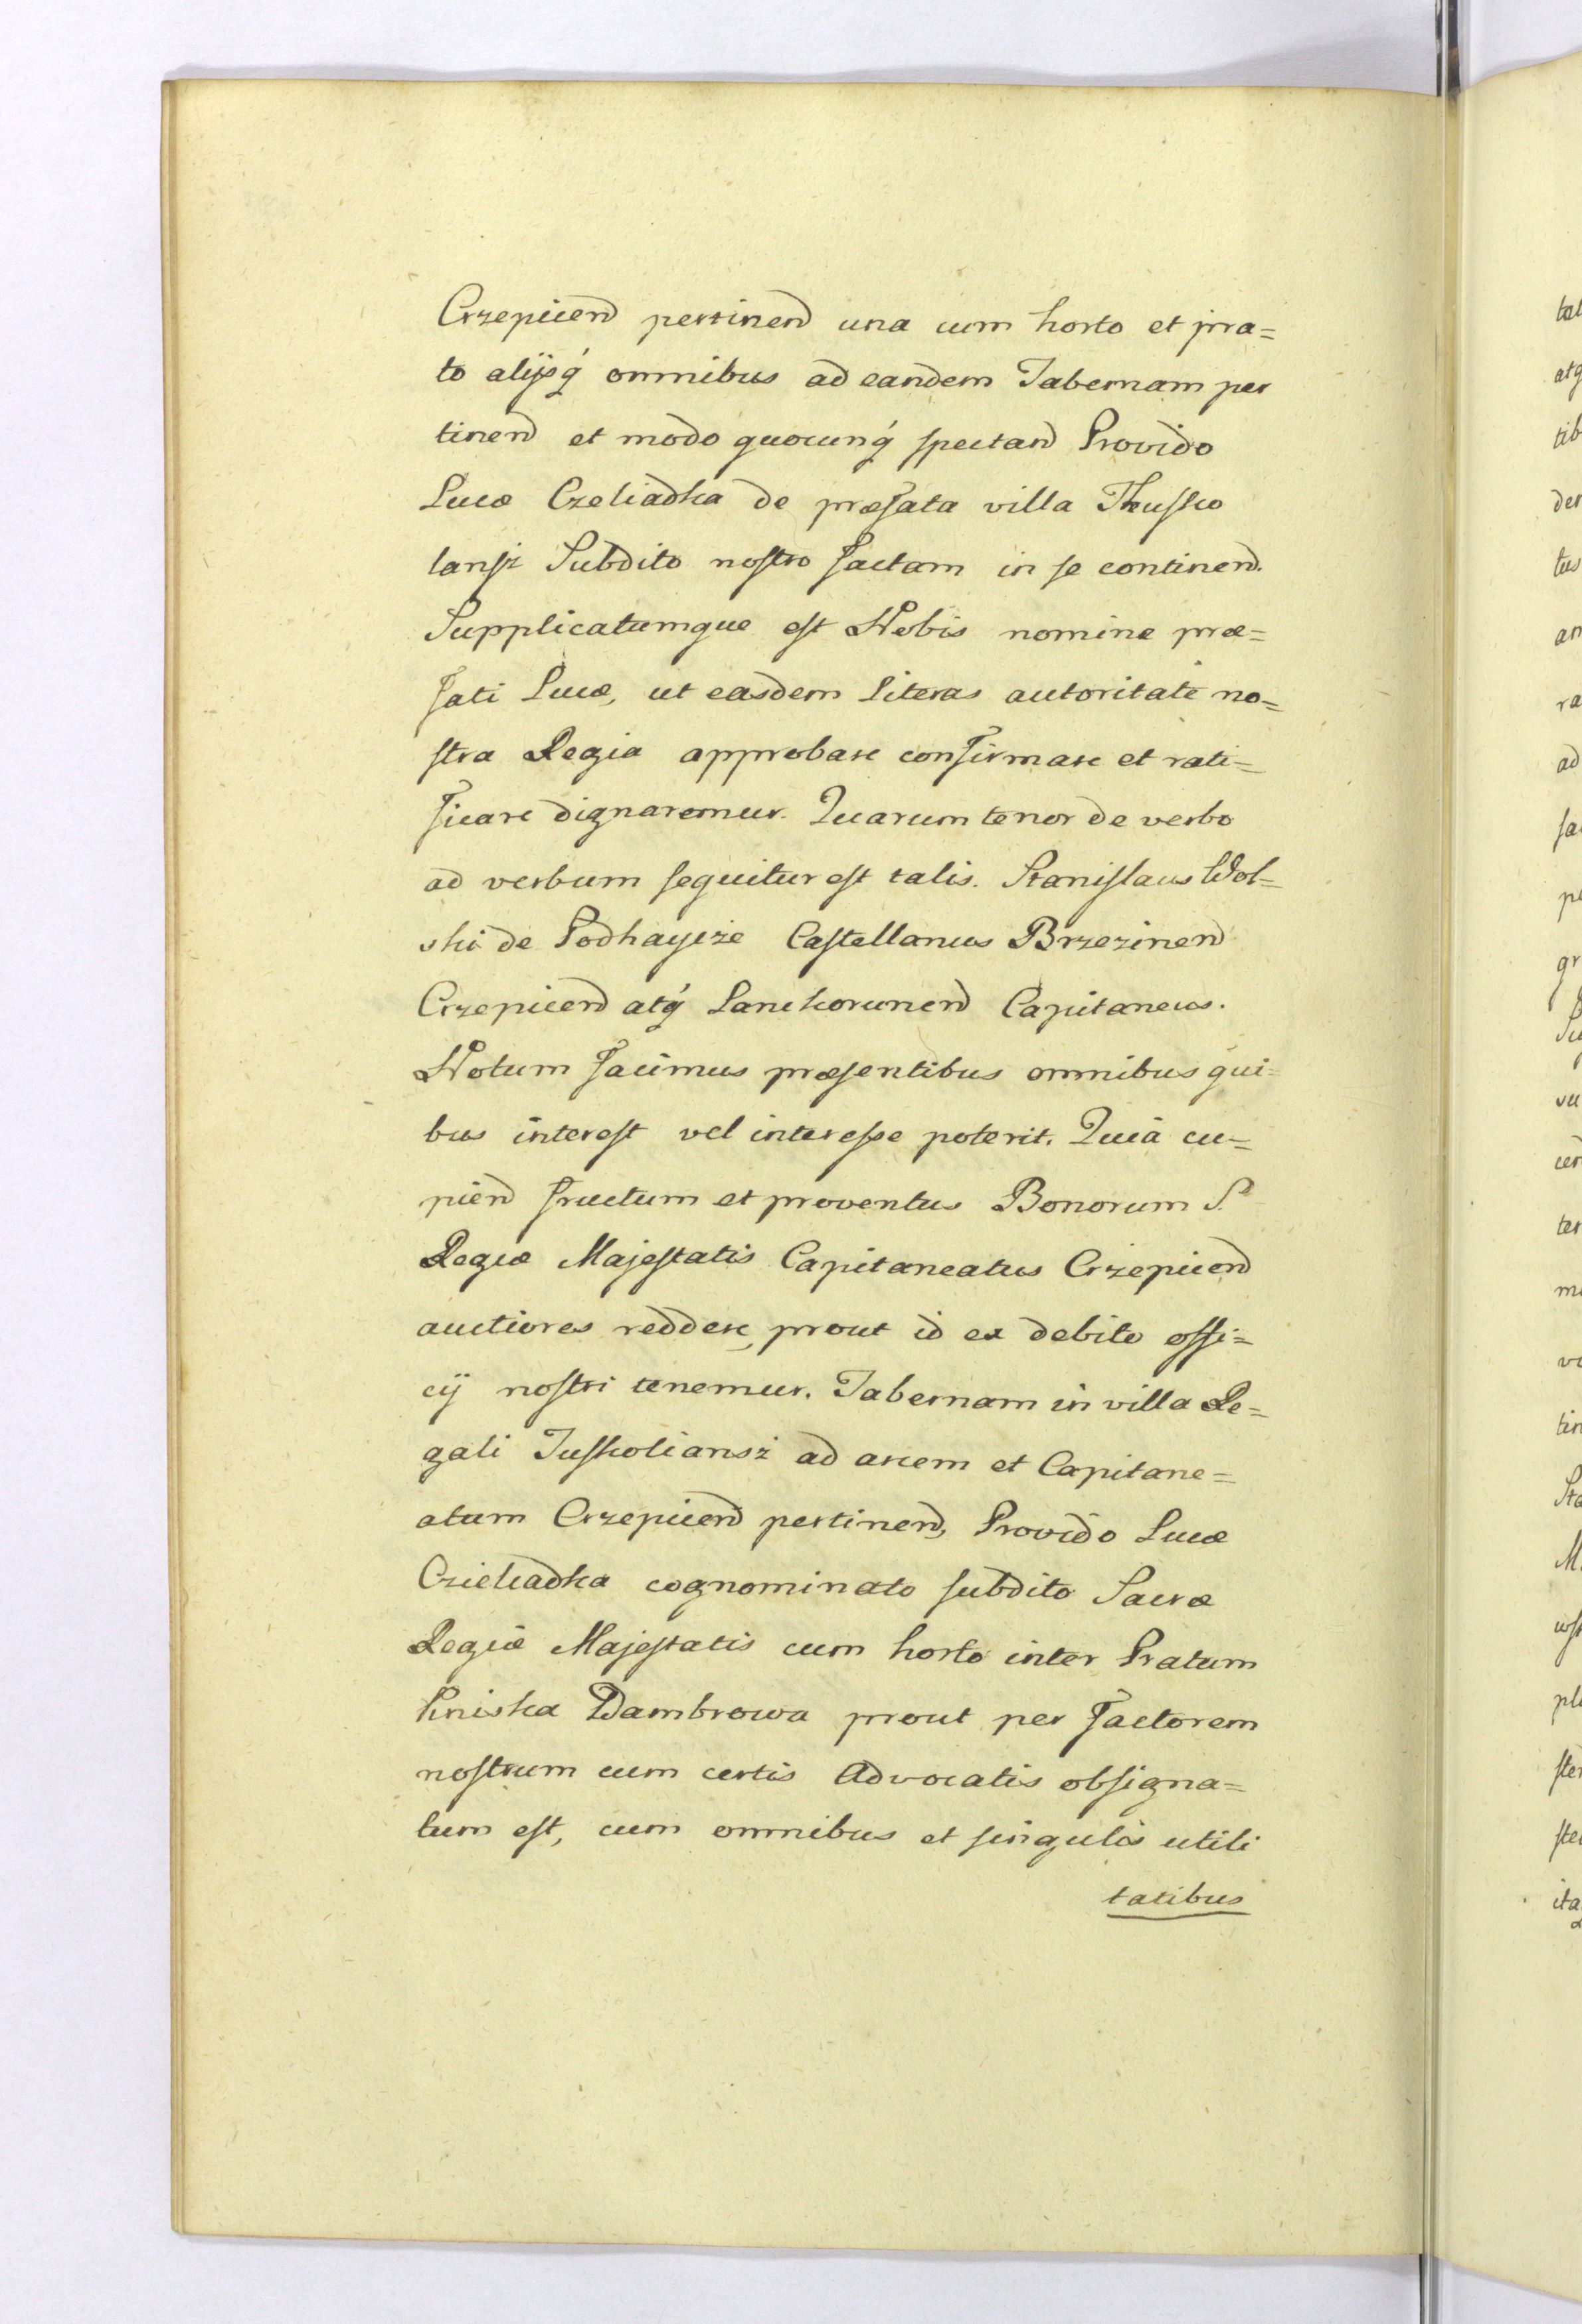 Crzepicen̄ pertinen̄ una cum horto et pra=
to alijsq́ omnibus ad eandem Tabernam per
tinen̄ et modo quocunq́ spectan̄ Provido
Lucæ Czeliadka de præfata villa Thussko
lansz Subdito nostro factam in se continen̄.
Supplicatumque est Nobis nomine præ=
fati Lucæ, ut easdem Literas autoritate no=
stra Regia approbare confirmare et rati=
ficare dignaremur. Quarum tenor de verbo
ad verbum sequitur est talis. Stanislaus Wol=
ski de Podhaycze Castellanus Brzezinen̄
Crzepicen̄ atq́ Lanckorunen̄ Capitaneus.
Notum facimus præsentibus omnibus qui=
bus interest vel interesse poterit. Quia cu=
pien̄ fructum et proventus Bonorum S.
Regiæ Majestatis Capitaneatus Crzepicen̄
auctiores reddere, prout id ex debito offi=
cij nostri tenemur. Tabernam in villa Re=
gali Tusskoliansz ad arcem et Capitane=
atum Crzepicen̄ pertinen̄, Provido Lucæ
Czieliadka cognominato subdito Sacræ
Regiæ Majestatis cum horto inter Pratum
Kniska Dambrowa prout per factorem
nostrum cum certis Advocatis obsigna=
tum est, cum omnibus et singulis utili
tatibus